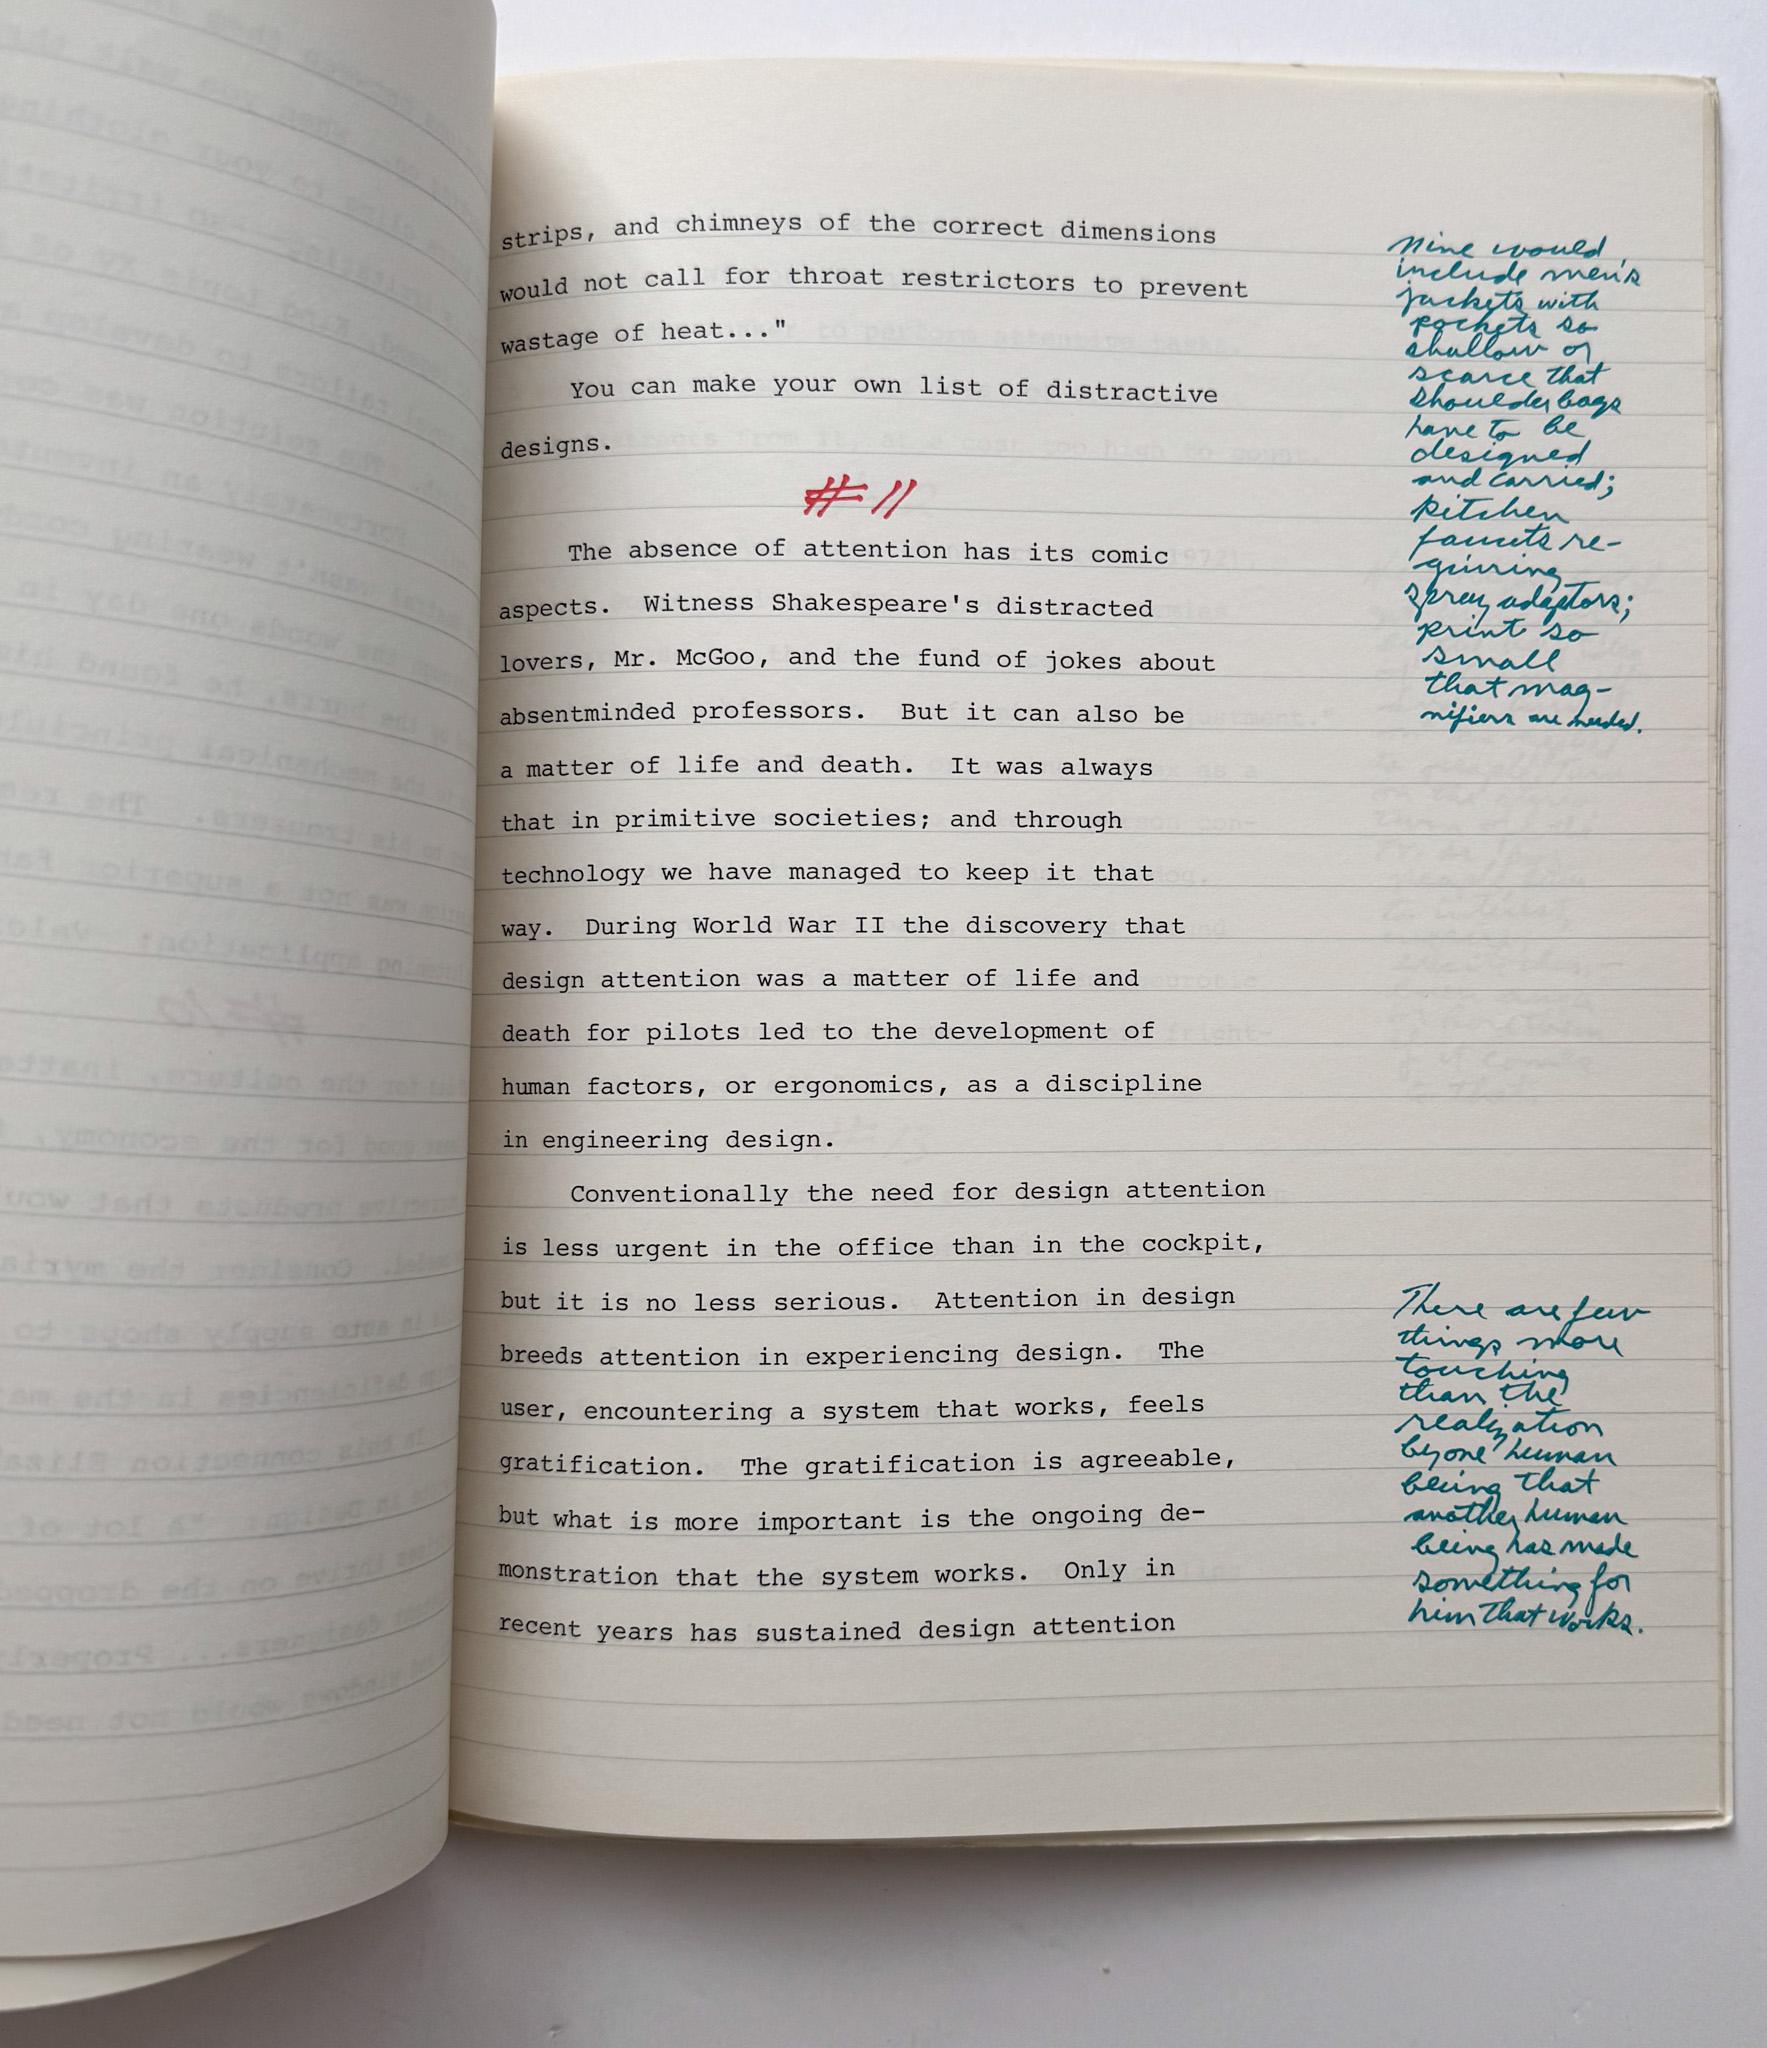 strips, and chimneys of the correct dimensions
would not call for throat restrictors to prevent
wastage of heat..."
You can make your own list of distractive
designs.
#11
The absence of attention has its comic
aspects. Witness Shakespeare's distracted
lovers, Mr. McGoo, and the fund of jokes about
absentminded professors. But it can also be
a matter of life and death. It was always
that in primitive societies; and through
technology we have managed to keep it that
way. During World War II the discovery that
design attention was a matter of life and
death for pilots led to the development of
human factors, or ergonomics, as a discipline
in engineering design.
Conventionally the need for design attention
is less urgent in the office than in the cockpit,
but it is no less serious. Attention in design
breeds attention in experiencing design. The
user, encountering a system that works, feels
gratification. The gratification is agreeable,
but what is more important is the ongoing de-
monstration that the system works. Only in
recent years has sustained design attention
Mine would
include men's
jackets with
pockets so
shallow or
scarce that
shoulder bags
have to be
designed
and carried;
kitchen
faucets re-
quiring
spray adaptors;
print so
small
that mag-
nifiers are needed.
There are few
things more
touching
than the
realization
by one human
being that
another human
being has made
something for
him that works.